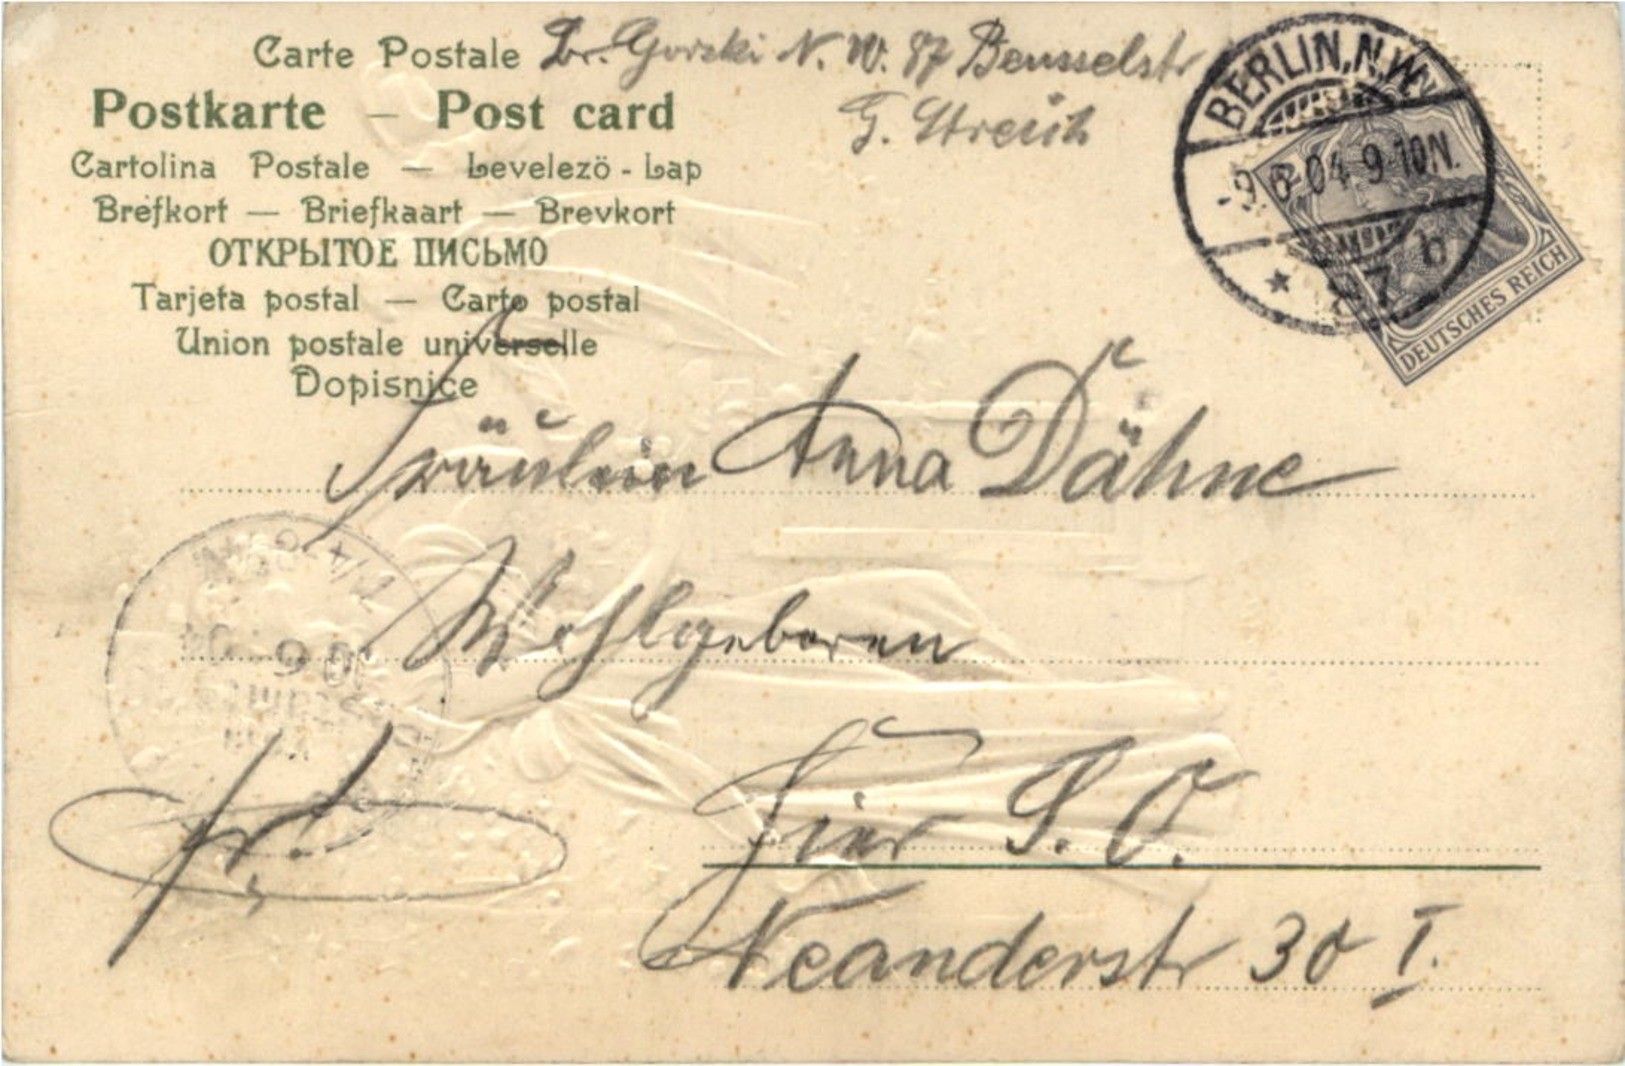 Carte Postale
Postkarte — Post card
Cartolina Postale — Levelezö - Lap
Brefkort — Briefkaart — Brevkort
ОТКРЫТОЕ ПИСЬМО
Tarjeta postal — Carto postal
Union postale universelle
Dopisnice
Gorski N. W. 87 Beusselstr
BERLIN, N.W.
9.6.04. 9-10N.
* 87 b
DEUTSCHES REICH
Fräulein Anna Dähne
Wohlgeboren
fr.
Hier S. O.
Neanderstr 30 I.